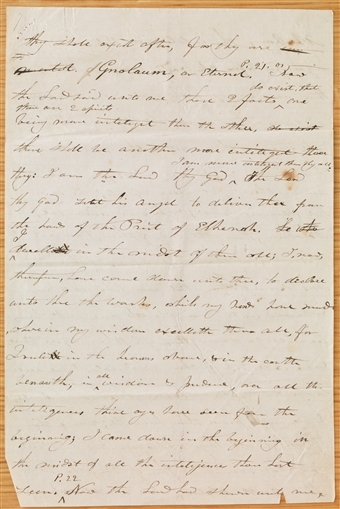 they shall exist after, for they are
Gnolaum, or Eternal. P. 21. Now
do exist, that
the Lord said unto me these 2 facts, one
there are 2 spirits
being more inteligent than the other,
there shall be another more inteligent than
I am more inteligent than they all
they: I am the Lord thy God, the Lord
thy God sent his Angel to deliver thee from
the hands of the Priest of Elkenah.
I dwell in the midst of them all; I, now,
therefore, have come down unto thee, to declare
unto thee the works, which my hands have made
wherein my wisdom excelleth them all, for
I rule in the heavens above, & in the earth
beneath, in all wisdom & prudence, over all the
inteligences thine eyes have seen from the
beginning; I came down in the beginning in
the midst of all the inteligence thou hast
P. 22
seen. Now the Lord had shewn unto me,